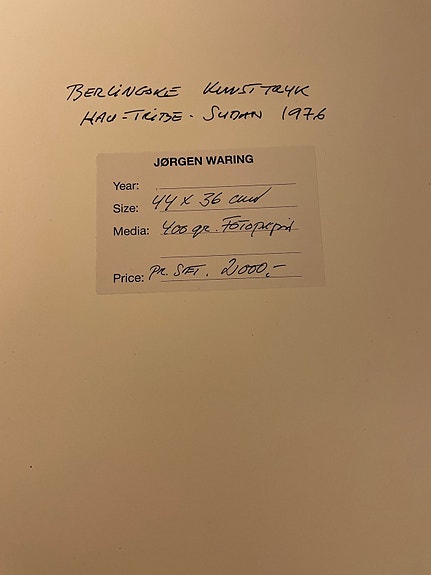 BERLINGSKE KUNSTTRYK
HAU-TRIBE - SUDAN 1976
JØRGEN WARING
Year:
Size: 44 x 36 cm
Media: 400 gr. Fotopapir
Price: PR. SET. 2000,-